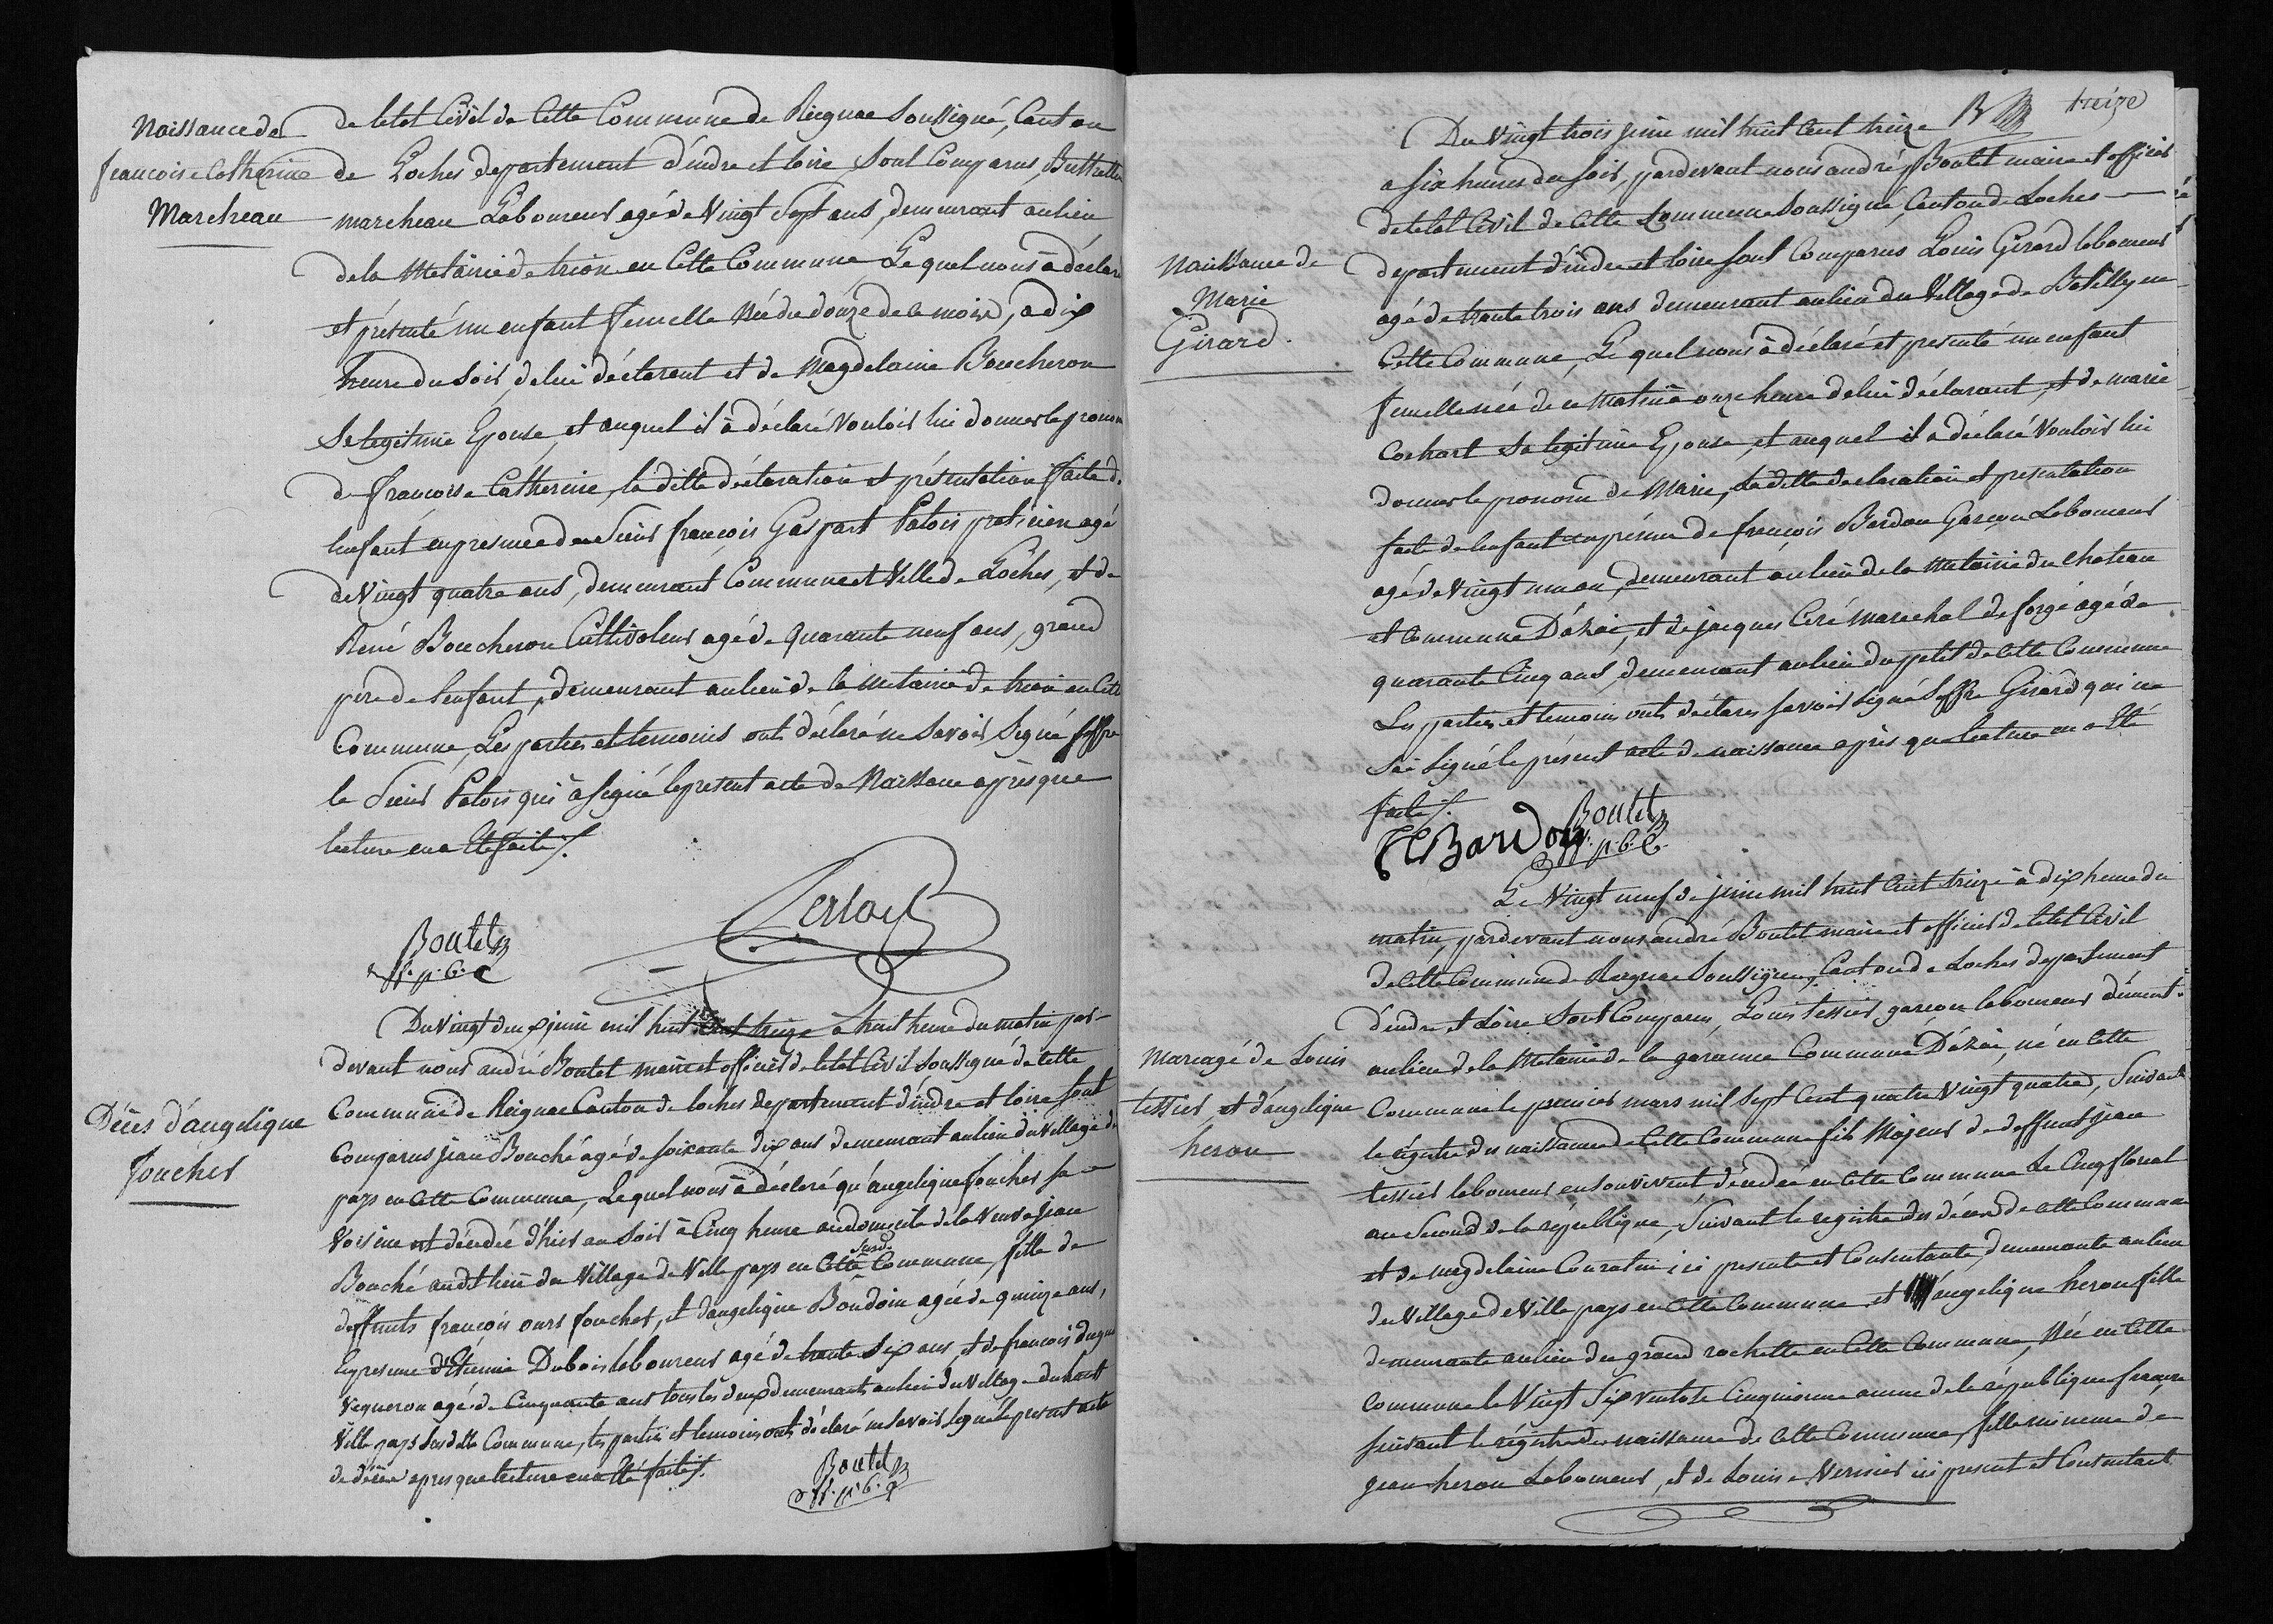 Naissance de
francoise Catherine
Marcheau
de letat Civil de Cette Commune de Reignac Soussigné, Canton
de Loches departement d'indre et loire, Sont Comparus,
marcheau Laboureur agé de Vingt Sept ans, demeurant au lieu
de la Metairie de trion en Cette Commune Le quel nous à déclaré
et présenté un enfant femelle Née du douze de ce mois, a dix
heure du Soir, de lui déclarant et de Magdelaine Boucheron
Sa legitime Epouse, et auquel il à déclaré Vouloir lui donner le pronom
de françoise Catherine, la ditte déclaration et présentation faite de
lenfant en presence du Sieur françois Gaspart Patois praticien agé
de Vingt quatre ans, demeurant Commune et Ville de Loches, et de
René Boucheron Cultivateur agé de quarante neuf ans, grand
pere de lenfant, demeurant au lieu de la metairie de trion en Cette
Commune, Les parties et temoins ont déclaré ne Savoir Signé Soffre
le Sieur Patois qui à Signé le present acte de Naissance après que
lecture en a Eté faite /.
Boutet
Décès d'angelique
foucher
Du Vingt deux juin mil huit Cent treize à huit heure du matin par
devant nous andré Boutet maire et officier de letat Civil Soussigné de Cette
Commune de Reignac Canton de loches departement d'indre et loire Sont
Comparus jean Bouché agé de Soixante dix ans demeurant au lieu du Village de
pays en Cette Commune, Lequel nous à déclaré qu'angelique foucher Sa
Voisine est décédée d'hier au Soir à Cinq heure au domicile de la Veuve jean
Bouché au dit lieu du Village de Ville pays en Cette Susd. Commune, fille de
deffunts françois ours foucher, et d'angelique Boudoin agée de quinze ans,
En presence d'Etienne Dubois laboureur agé de trente Six ans, et de francois
Vigneron agé de Cinquante ans tous les deux demeurants au lieu du Village du haut
Ville pays Susditte Commune, les parties et temoins ont déclaré ne Savoir Signé le present acte
de décès apres que lecture en a Eté faite /.
Boutet
treize
Naissance de
Marie
Girard.
Du Vingt trois juin mil huit Cent treize
a Six heures du Soir, pardevant nous andré Boutet maire et officier
de letat Civil de Cette Commune Soussigné, Canton de Loches
departement d'indre et loire Sont Comparus Louis Girard laboureur
agé de trente trois ans demeurant au lieu du Village de Batilly en
Cette Commune, Le quel nous à déclaré et presenté un enfant
femelle née de ce matin à onze heure de lui déclarant, et de marie
Cochart Sa legitime Epouse, et auquel il a déclaré Vouloir lui
donner le pronom de Marie, la ditte declaration et presentation
faite de lenfant en présence de françois Bardou Garçon Laboureur
agé de Vingt un an, demeurant au lieu de la Metairie du chateau
et Commune D'azai, et de jacques Ceré marechal de forge agé de
quarante Cinq ans, demeurant au lieu du petit de Cette Commune
Les parties et temoins ont déclarés Savoir Signé Soffre Girard qui ne
Sai Signé le présent acte de naissance après que lecture en a Eté
faite /.
Boutet
Bardou
Mariagé de Louis
tessier, et d'angelique
heron
Le Vingt neuf de juin mil huit Cent treize à dix heure du
matin, pardevant nous andré Boutet maire et officier de letat Civil
de Cette Commune de Reignac Soussigné, Canton de Loches departement
d'indre et Loire Sont Comparus, Louis tessier garcon laboureur demeurt.
au lieu de la Metairie de la garenne Commune D'azai, né en Cette
Commune le premier mars mil Sept Cent quatre Vingt quatre, Suivant
le régistre des naissances de Cette Commune fils Majeur de deffunt jean
tessier laboureur en Son vivent décédé en Cette Commune Le Cinq floreal
an Second de la république, Suivant le registre des décès de Cette Commune
et de magdelaine Couratin ici presente et Consentante, demeurante au lieu
du Village de Ville pays en Cette Commune et angelique heron fille
demeurante au lieu du grand rochette en Cette Commune, Née en Cette
Commune le Vingt Six ventose Cinquieme annee de la république francaise
Suivant le régistre des naissance de Cette Commune, fille mineure de
jean heron Laboureur, et de Louise Vernier ici present et Consentant